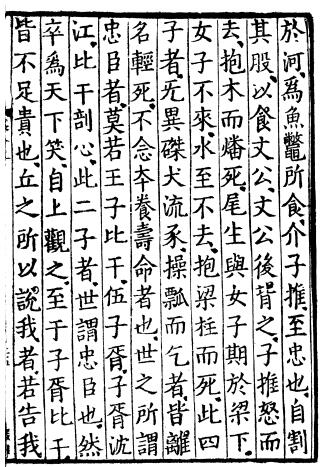 於河、爲魚鼈所食、介子推至忠也、自割
其股、以食文公、文公後背之、子推怒而
去、抱木而燔死、尾生與女子期於梁下、
女子不來、水至不去、抱梁柱而死、此四
子者、无異磔犬流豕、操瓢而乞者、皆離
名輕死、不念夲養壽命者也、世之所謂
忠臣者、莫若王子比干、伍子胥、子胥沈
江、比干剖心、此二子者、世謂忠臣也、然
卒爲天下笑、自上觀之、至于子胥比干、
皆不足貴也、丘之所以說我者、若告我